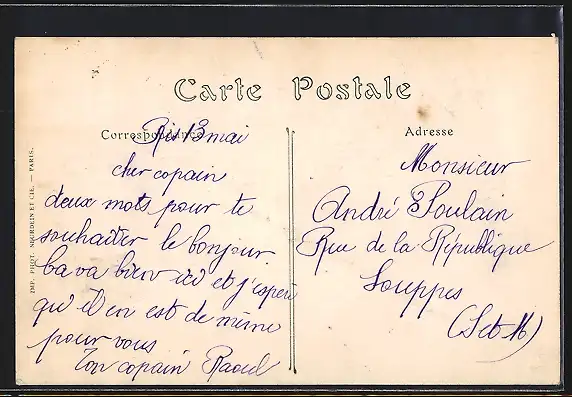 Carte Postale
Correspondance
Adresse
Ris 13 mai
cher copain
deux mots pour te
souhaiter le bonjour
ba va bien ici et j'espère
qu'il en est de même
pour vous
Ton copain Raoul
Monsieur
André Poulain
Rue de la République
Souppes
(S et M)
IMP. PHOT. NEURDEIN ET CIE. — PARIS.